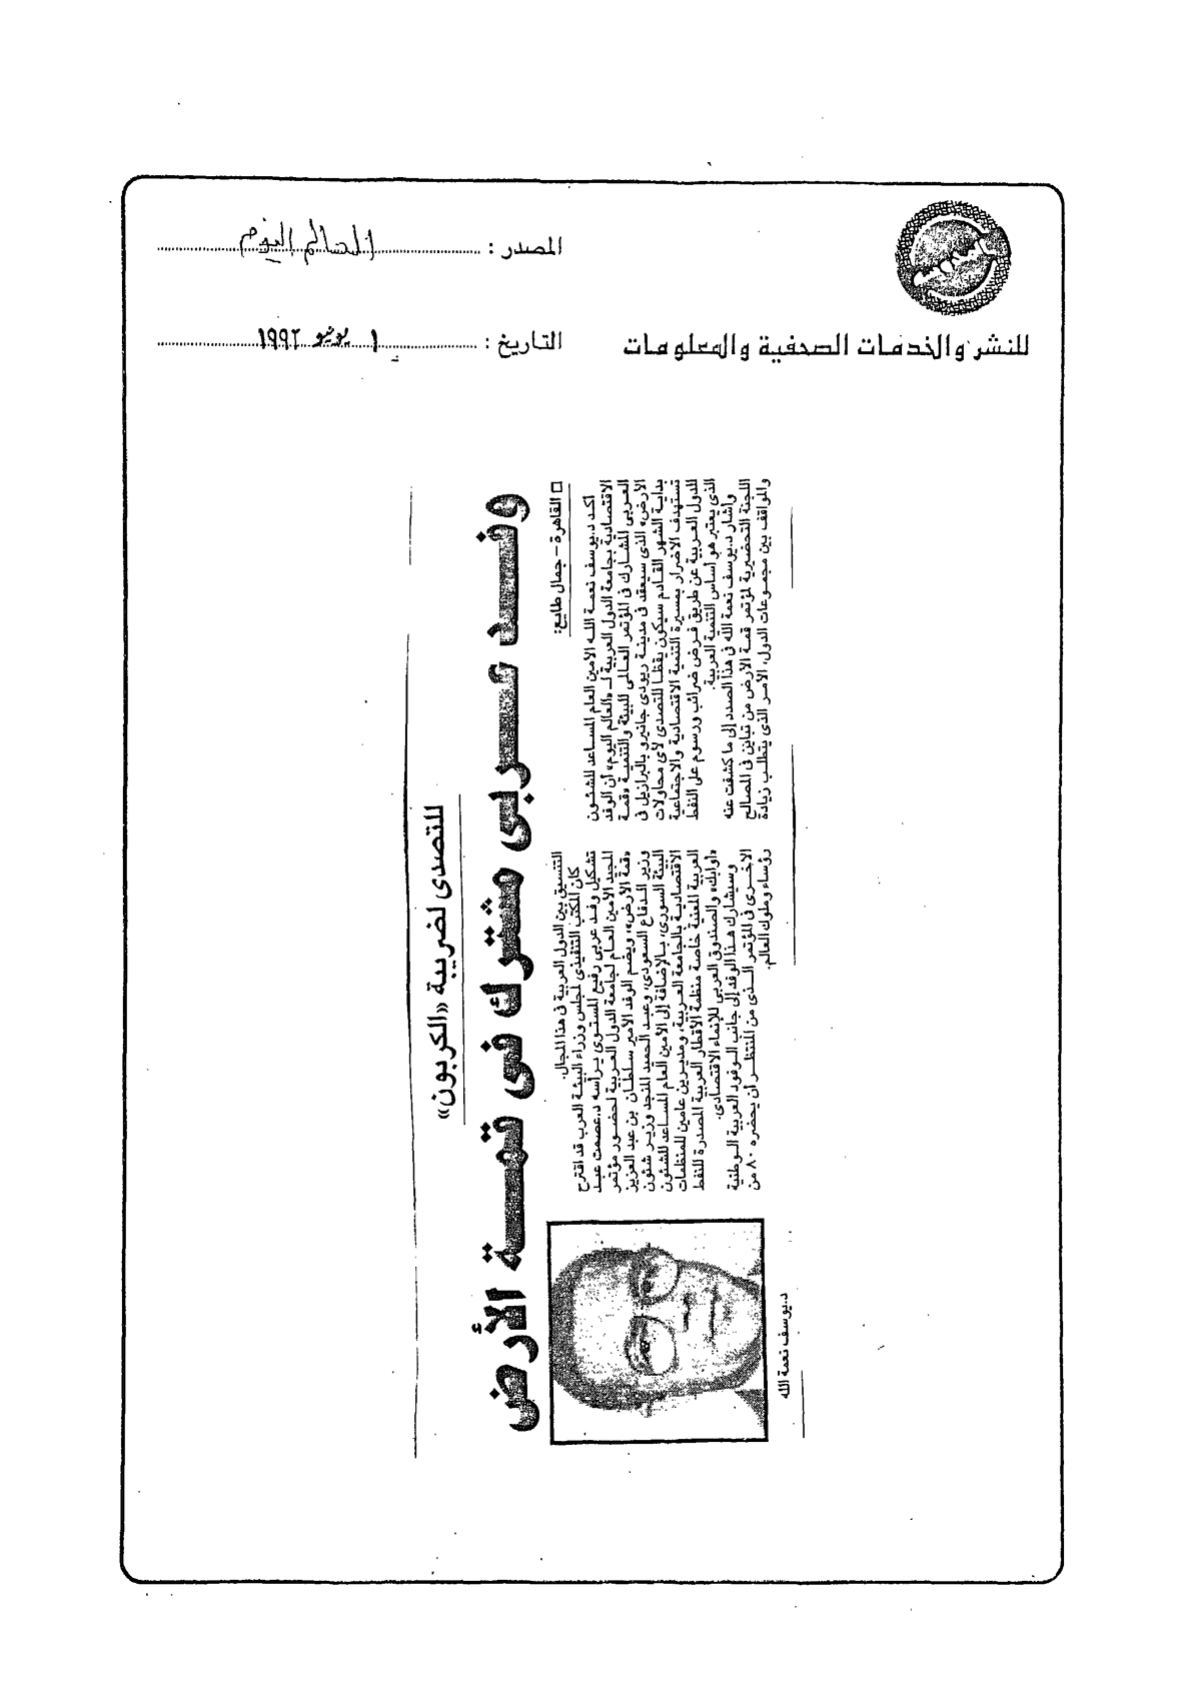 المصدر : العالم اليوم
التاريخ : ١ يونيو ١٩٩٢
للنشر والخدمات الصحفية والمعلومات
للتصدى لضريبة «الكربون»
وفد عربى مشترك فى قمة الأرض
□ القاهرة – جمال طايع:
أكد د.يوسف نعمة الله الأمين العام المساعد للشئون
الاقتصادية بجامعة الدول العربية لـ «العالم اليوم» أن الوفد
العربى المشارك فى المؤتمر العالمى للبيئة والتنمية «قمة
الأرض» الذى سيعقد فى مدينة ريودى جانيرو بالبرازيل فى
بداية الشهر القادم سيكون يقظا للتصدى لأى محاولات
تستهدف الاضرار بمسيرة التنمية الاقتصادية والاجتماعية
للدول العربية عن طريق فرض ضرائب ورسوم على النفط
الذى يعتبر هو أساس التنمية العربية.
وأشار د.يوسف نعمة الله فى هذا الصدد إلى ما كشفت عنه
اللجنة التحضيرية لمؤتمر قمة الأرض من تباين فى المصالح
والمواقف بين مجموعات الدول، الأمر الذى يتطلب زيادة
التنسيق بين الدول العربية فى هذا المجال.
كان المكتب التنفيذى لمجلس وزراء البيئة العرب قد اقترح
تشكيل وفد عربى رفيع المستوى يرأسه د.عصمت عبد
المجيد الأمين العام لجامعة الدول العربية لحضور مؤتمر
«قمة الأرض»، ويضم الوفد الأمير سلطان بن عبد العزيز
وزير الدفاع السعودى، وعبد الحميد المنجد وزير شئون
البيئة السورى، بالإضافة إلى الأمين العام المساعد للشئون
الاقتصادية بالجامعة العربية، ومديرين عامين للمنظمات
العربية المعنية خاصة منظمة الأقطار العربية المصدرة للنفط
«أوابك» والصندوق العربى للإنماء الاقتصادى.
وسيشارك هذا الوفد إلى جانب الوفود العربية الوطنية
الأخرى فى المؤتمر الذى من المنتظر أن يحضره ٨٠ من
رؤساء وملوك العالم.
د.يوسف نعمة الله